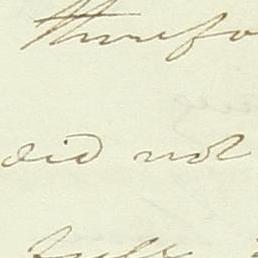 therefo
did not